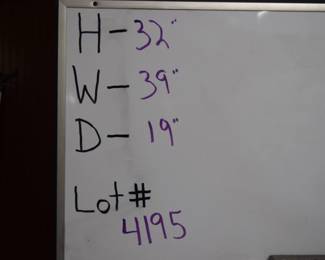 H - 32"
W - 39"
D - 19"
Lot #
4195